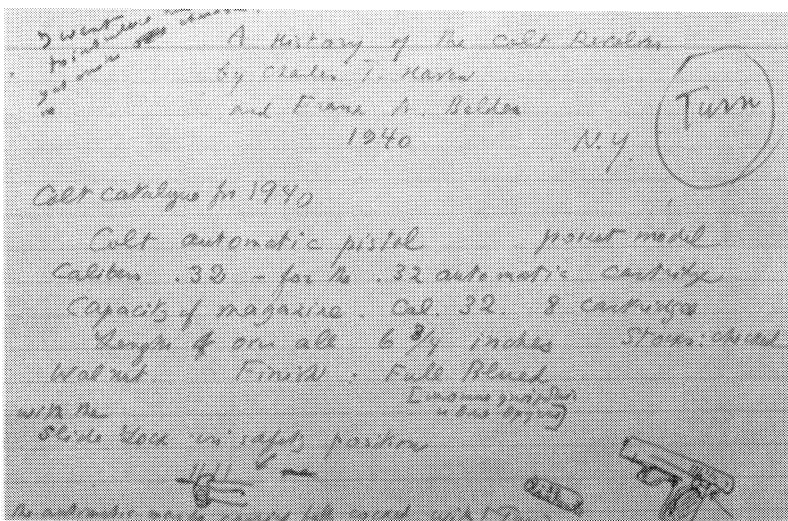 I want
A History of the Colt Revolver
by Charles T. Haven
and Frank A. Belden
1940 N.Y.
Turn
Colt catalogue for 1940
Colt automatic pistol pocket model
Caliber .32 – for the .32 automatic cartridge
Capacity of magazine. Cal. 32. 8 cartridges
Length of over all 6 3/4 inches Stocks: checked
Walnut. Finish: Full Blued
with the
slide lock in safety position